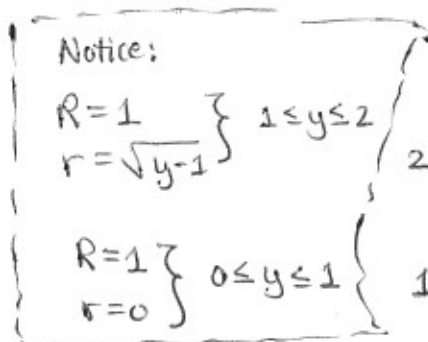 Notice:
R=1
r=√y-1 } 1≤y≤2
2
R=1
r=0 } 0≤y≤1
1